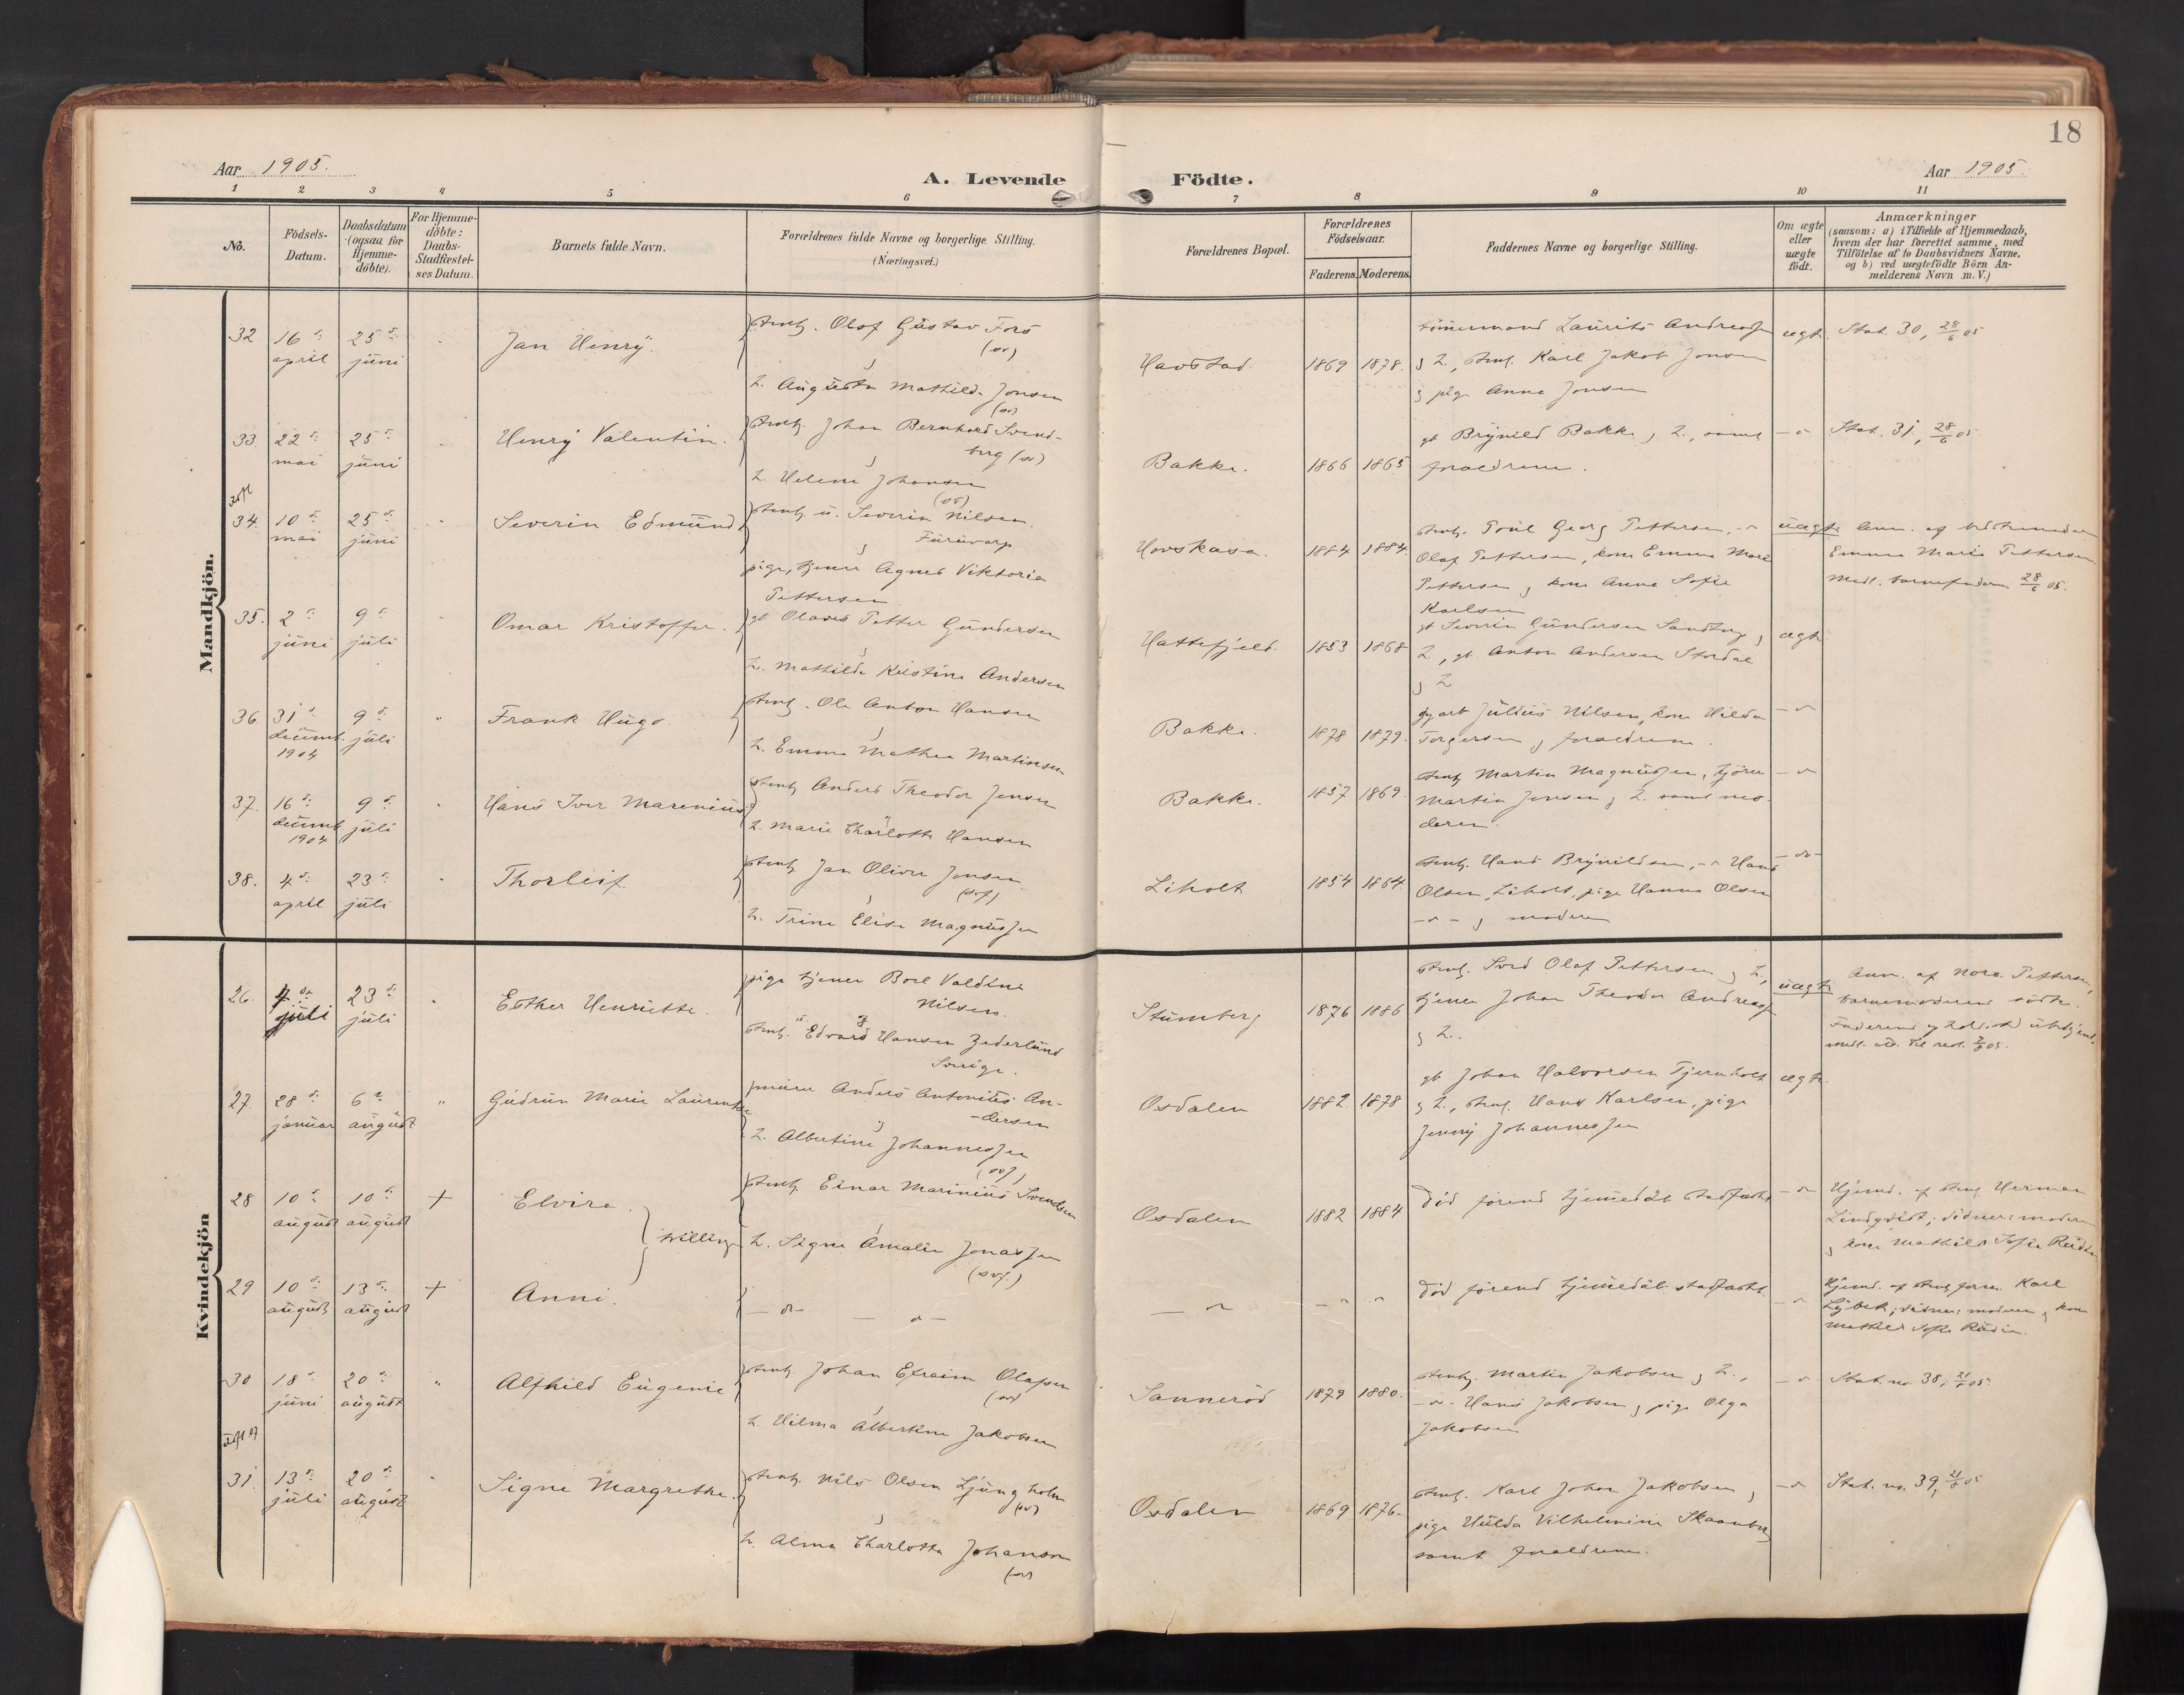 18
Aar 1905.
A. Levende Födte.
Aar 1905.
1 2 3 4 5 6 7 8 9 10 11
No.
Födsels-
Datum.
Daabsdatum
(ogsaa for
Hjemme-
döbte).
For Hjemme-
döbte:
Daabs-
Stadfæstel-
ses Datum.
Barnets fulde Navn.
Forældrenes fulde Navne og borgerlige Stilling.
(Næringsvei.)
Forældrenes Bopæl.
Forældrenes
Födselsaar.
Faderens. Moderens.
Faddernes Navne og borgerlige Stilling.
Om ægte
eller
uægte
födt.
Anmærkninger
(saasom: a) i Tilfælde af Hjemmedaab,
hvem der har forrettet samme, med
Tilföielse af to Daabsvidners Navne,
og b) ved uægtefödte Börn An-
melderens Navn m. V.)
Mandkjön.
32
16 april
25 juni
Jan Henry.
stenh. Olof Gustav Fors
(sv)
h. Augusta Mathilde Jonsen
(sv)
Havstad
1869 1878.
tömmermand Laurits Andreas
h., stenh. Karl Jakob Jonsen
pige Anna Jonsen
ægte
Stat. 30, 28/6 05
33.
22 mai
25 juni
Henry Valentin.
stenh. Johan Bernhard Svend-
berg (sv)
h. Helene Johansen
(sv)
Bakke.
1866 1865
gb Brynild Bakke, h., samt
forældrene.
Stat. 31, 28/6 05
34.
10 mai
25 juni
Severin Edmund
stenh. u. Severin Nilsen.
Furuvarp
pige, tjener Agnes Viktoria
Pettersen
Hovskasa.
1884 1884.
stenh. Poul Georg Pettersen,
Olaf Pettersen, kone Emma Marie
Pettersen, kone Anna Sofie
Karlsen
uægte
Emma Marie Pettersen
Medl. barnefaderen 28/6 05.
35.
2 juni
9 juli
Omar Kristoffer.
gb Olaves Petter Gundersen
h. Mathilde Kristine Andersen
Hattefjeld.
1853 1868
gb Severin Gundersen Sandtorp,
h, gb. Anton Andersen Stordal
h
ægte
36.
31 decemb. 1904
9 juli
Frank Hugo.
stenh. Ole Anton Hansen
h. Emma Mathea Martinsen
Bakke.
1878 1879.
Julius Nilsen, kone Hilda
Torgersen, forældrene.
37.
16 decemb 1904
9 juli
Hans Iver Marenius
stenh Anders Theodor Jensen
h. Marie Charlotte Hansen
Bakke.
1857 1869.
stenh Martin Magnussen,
Martin Jensen, h. samt mo-
deren.
38.
4 april
23 juli
Thorleif
stenh Jan Oliver Jonsen
(sv)
h. Trine Elise Magnussen
Liholt
1854 1864.
stenh. Hans Brynildsen, Hans
Olsen, Liholt, pige Hanna Olsen
moderen
Kvindekjön
26.
4 juli
23 juli
Esther Henriette.
pige tjener Boel Valdine
Nilsen.
stenh. Edvard Hansen Zederlund
Sverige.
Stumberg
1876 1886
stenh. Svend Olaf Pettersen, h.,
tjener Johan Theodor Andreas
h.
uægte
Ann. af Nora Pettersen,
barnemoderens söster.
27
28 januar
6 august
Gudrun Marie Laurentse
murer Anders Antonius An-
dersen
h. Albertine Johannessen
(sv)
Osdalen
1882 1878
gb Johan Halvorsen Tjernholt
h., stenh. Hans Karlsen, pige
Jenny Johannessen
ægte.
28
10 august
10 august
+
Elvira.
tvilling
stenh. Einar Marinius Svendsen
h. Signe Amalie Jonassen
(sv.)
Osdalen
1882 1884
död förend hjemedåb stadfæstet
Hjemd. af stenh Herman
Lindqvist; vidner: moderen
kone Mathilde Sofie
29
10 august
13 august
+
Anni.
död förend hjemedåb stadfæstet.
Hjemd. af Karl
Lybek; vidner: moderen, kone
Mathilde Sofie
30
18 juni
20 august
Alfhild Eugenie
stenh. Johan Efraim Olafsen
(sv)
h. Hilma Albertine Jakobsen
Sanneröd
1879 1880.
stenh. Martin Jakobsen, h.,
Hans Jakobsen, pige Olga
Jakobsen
Stat. no. 38, 21/8 05.
31.
13 juli
20 august
Signe Margrethe.
stenh. Nils Olsen Ljungholm
(sv)
h. Alma Charlotta Johanson
(sv)
Osdalen
1869 1876.
stenh. Karl Johan Jakobsen,
pige Hulda Vilhelmine Skaanberg
samt forældrene.
Stat. no. 39, 21/8 05